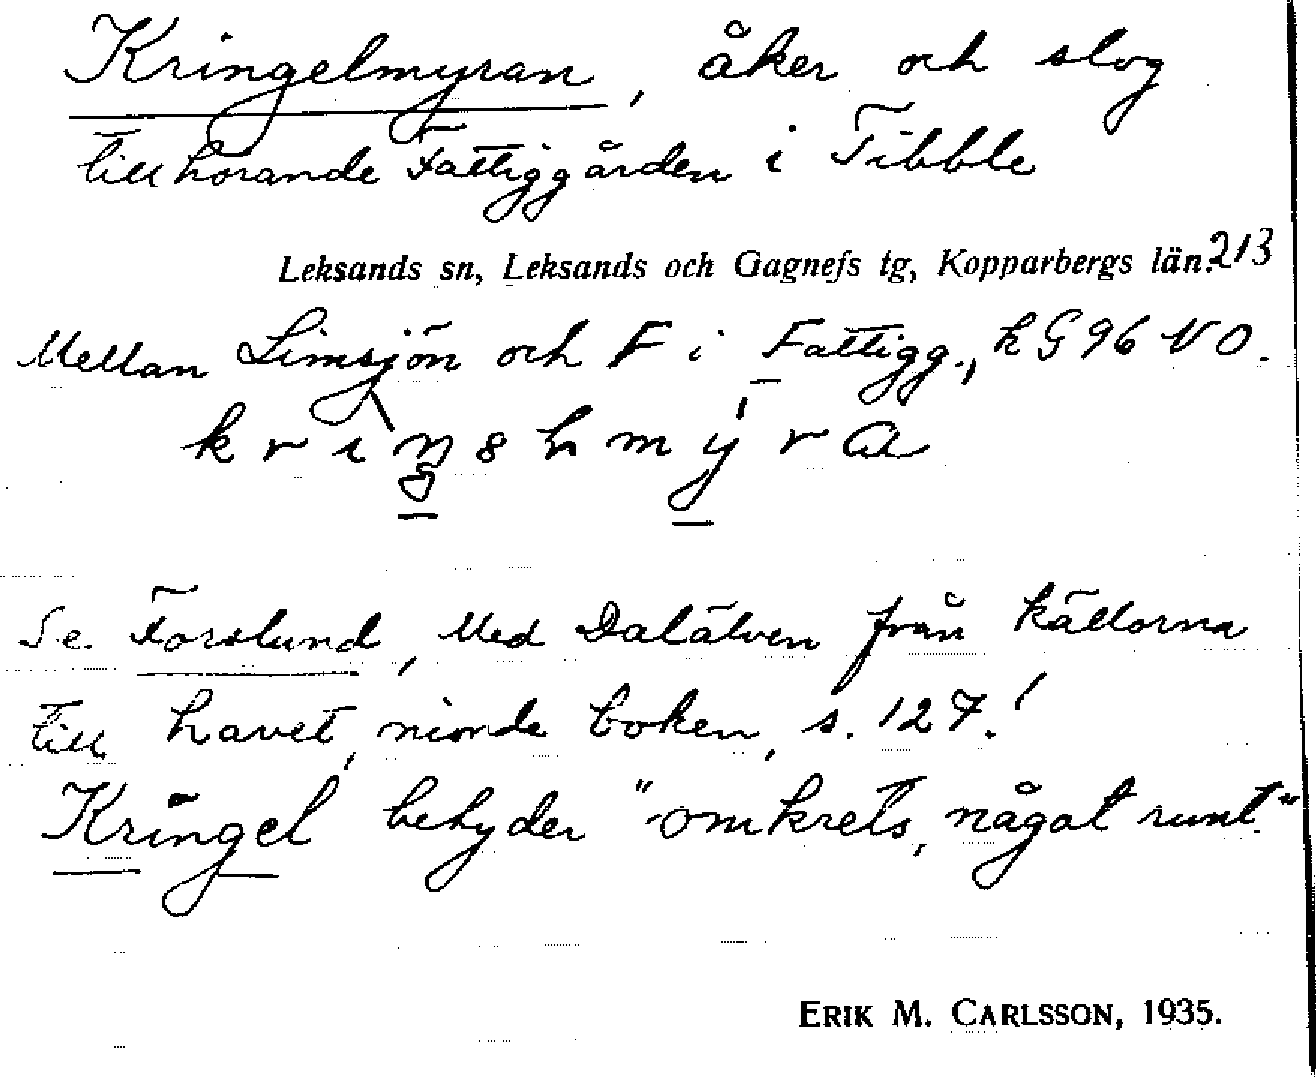 Kringelmyran, åker och slog
tillhörande Fattiggården i Tibble
Leksands sn, Leksands och Gagnefs tg, Kopparbergs län. 213
Mellan Limsjön och F i Fattigg., k G 96 NO.
Se Forslund, Med Dalälven från källorna
till havet, nionde boken, s. 127!
Kringel betyder "omkrets, något runt."
ERIK M. CARLSSON, 1935.